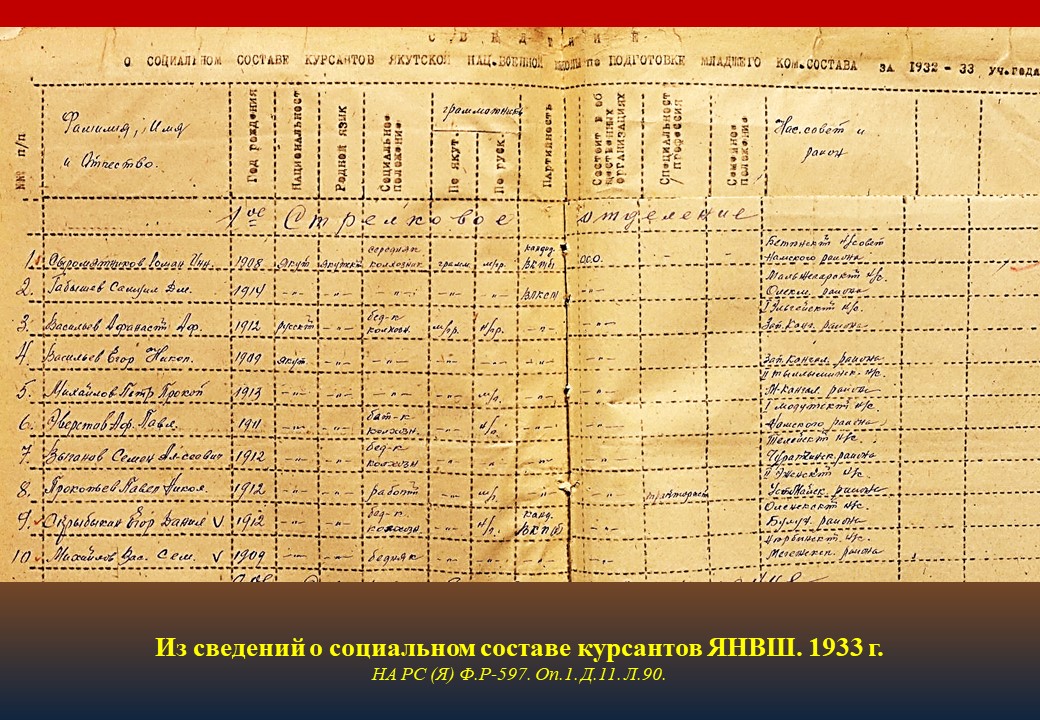 С В Е Д Е Н И Е
О СОЦИАЛЬНОМ СОСТАВЕ КУРСАНТОВ ЯКУТСКОЙ НАЦ.ВОЕННОЙ ШКОЛЫ по ПОДГОТОВКЕ МЛАДШЕГО КОМ.СОСТАВА за 1932-33 уч.года
№№ п/п Фамилия, Имя и Отчество. Год рождения Национальност Родной язык Социальное положение грамотность По якут. По руск. Партийность Состоит в об щественных организациях Специальност профессия Семейное положение Нас.совет и район
1ое Стрелковое отделение
1. Сыромятников Роман Инн. 1908 якут якутск середняк колхозник грамм. м/гр. канд. ВКПб О.С.О. - - Бетюнский н/совет Намского района
2. Габышев Самуил Дм. 1914 -„- -„- -„- -„- -„- ВЛКСМ Олекм. района
3. Васильев Афанаст Аф. 1912 русский -„- бед-к колхозн. м/гр. н/гр. -„- -„- Зап.Канг. района
4. Васильев Егор Никол. 1909 якут -„- -„- -„- -„- -„- -„- Зап.Кангал. района
5. Михайлов Петр Прокоп 1913 -„- -„- -„- -„- м/г. -„- -„- М-Кангал района
6. Эверстов Аф. Павл. 1911 -„- -„- бат-к колхозн. -„- н/г. -„- -„- I Модутский н/с. Намского района
7. Семен Алексеевич 1912 -„- -„- бед-к колхозн -„- „ „ -„- Телейский н/с. Чурапчинск. района
8. Прокопьев Павел Никол. 1912 -„- -„- работ -„- м/г. -„- -„- тракторист Уст.Майск. района
9. Скрыбыкин Егор Данил V 1912 -„- -„- бед-к колхозн. -„- н/г. канд. ВКП(б) -„- Оленекский н/с. Булун. района
10. Михайлов Вас. Сем. V 1909 -„- бедняк -„- -„- -„- Мегежекск. района
Из сведений о социальном составе курсантов ЯНВШ. 1933 г.
НА РС (Я) Ф.Р-597. Оп.1. Д.11. Л.90.